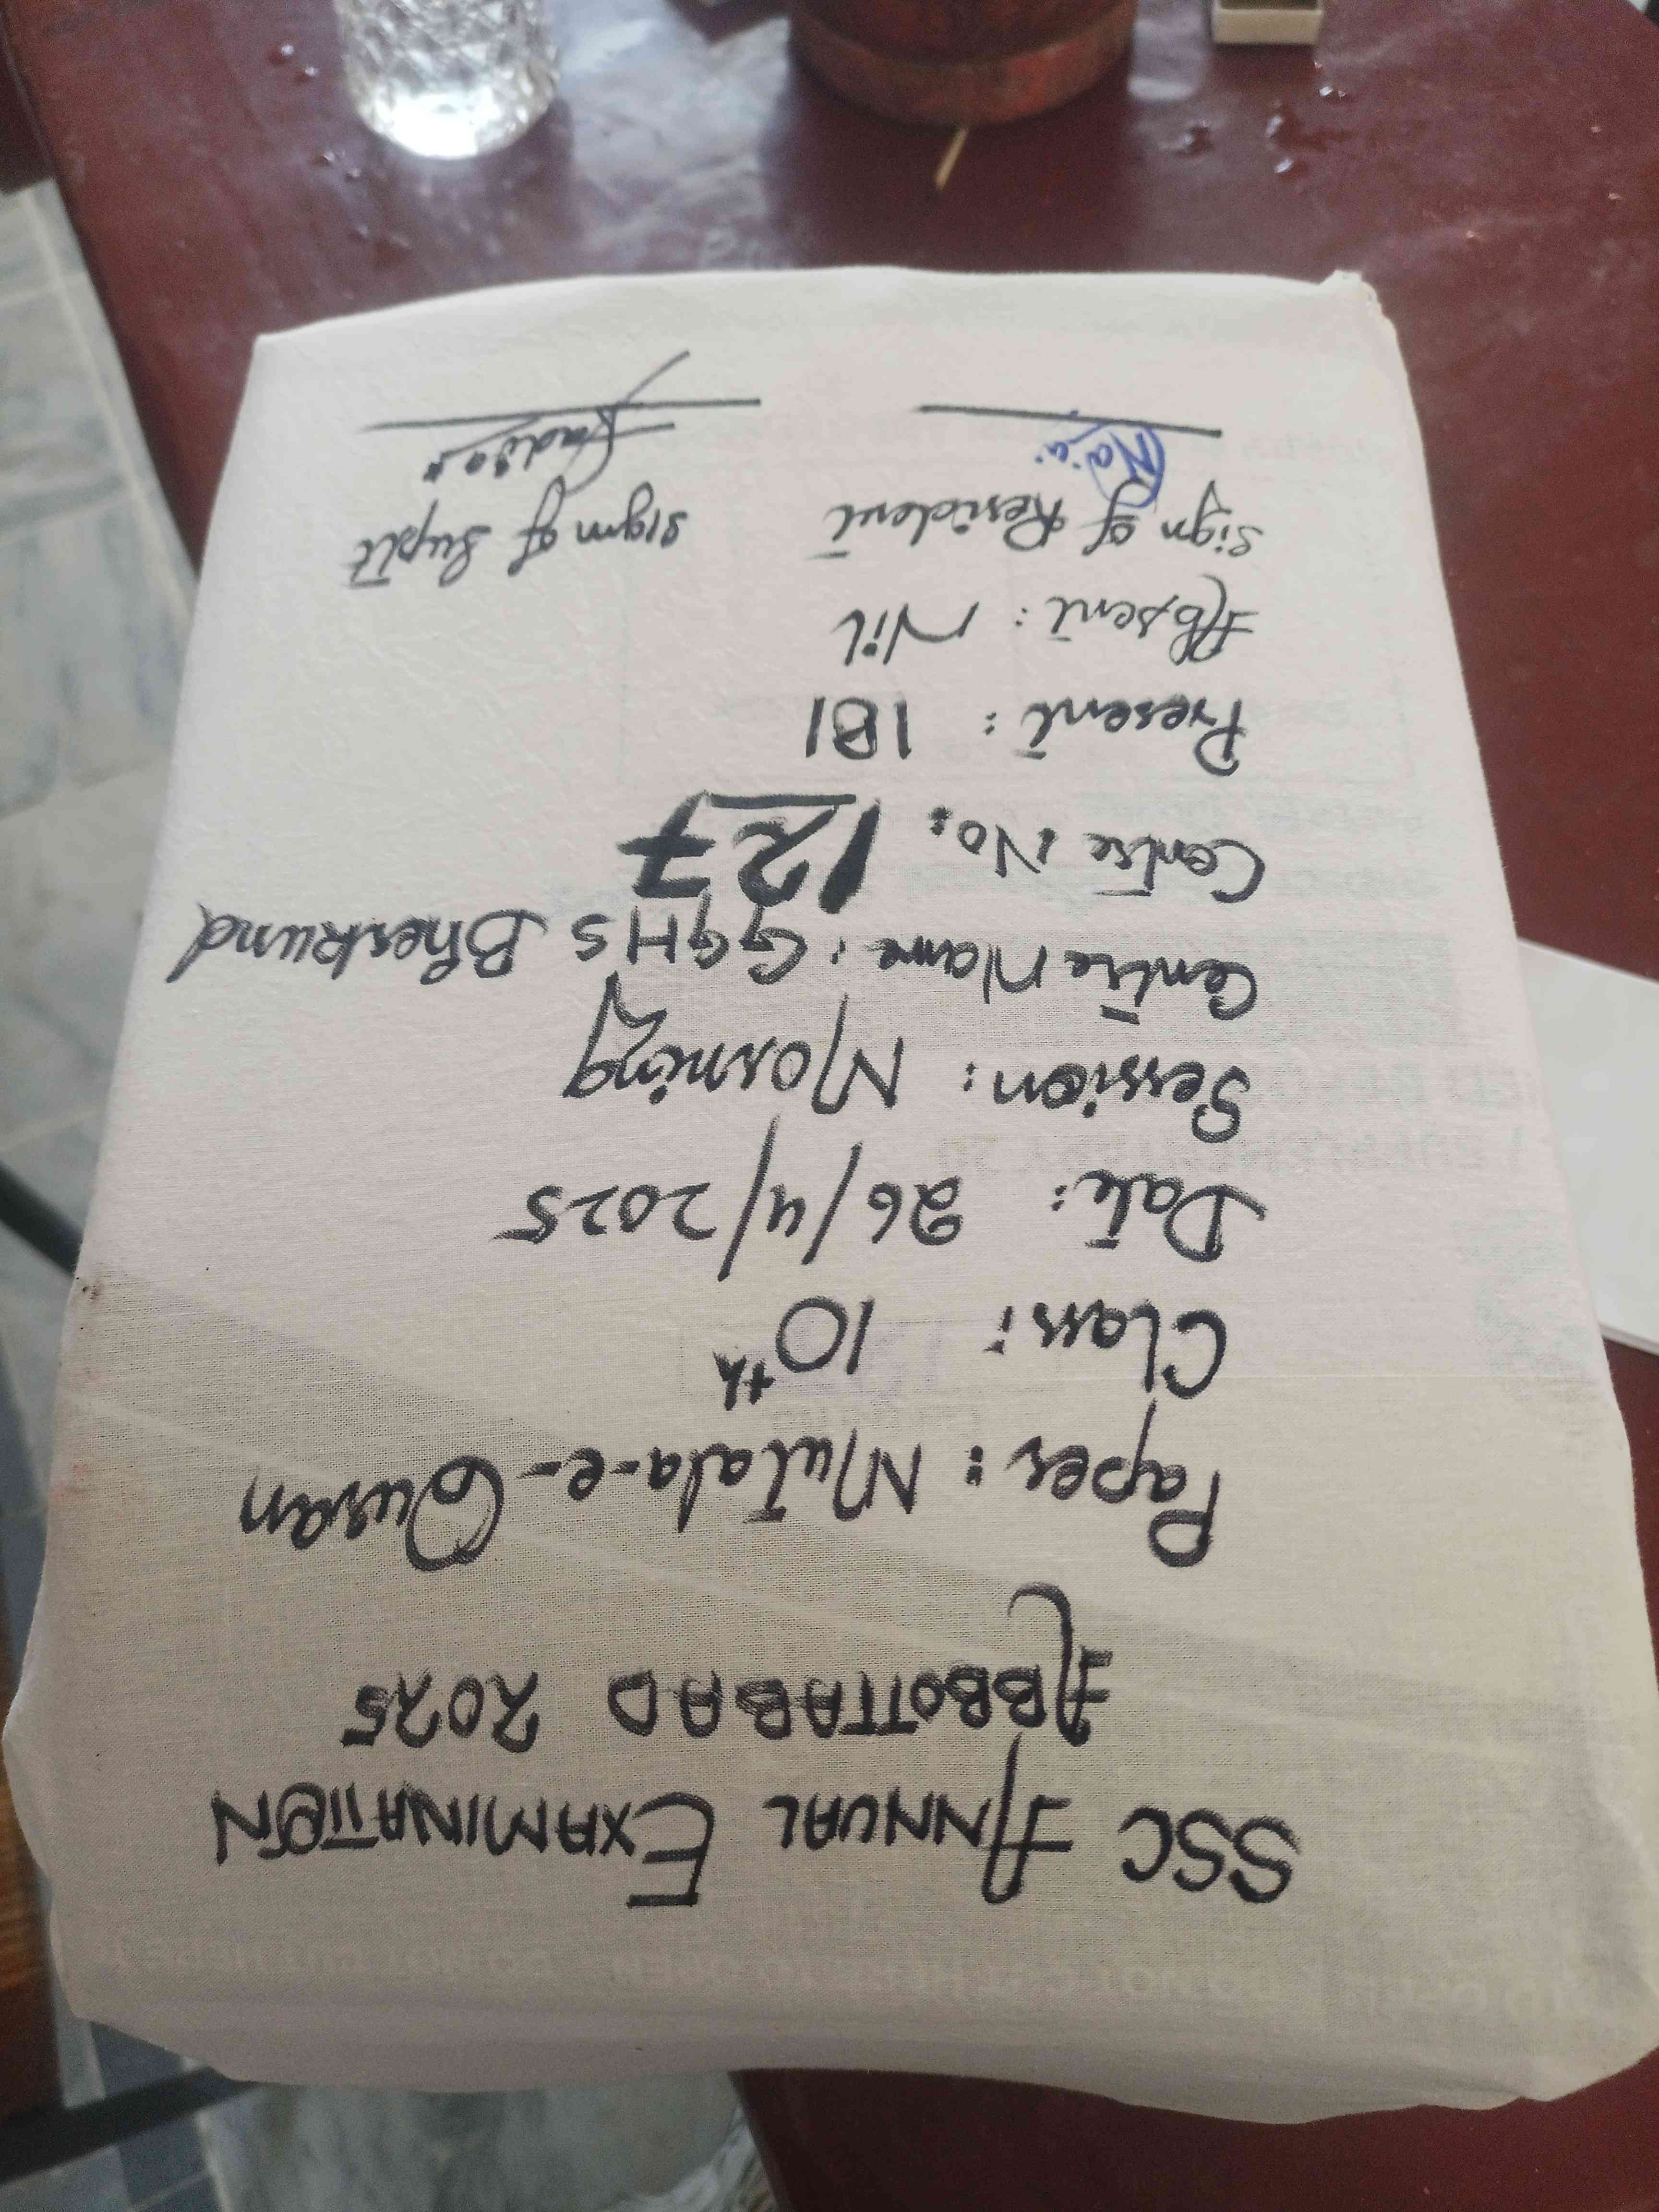 SSC ANNUAL EXAMINATION
ABBOTTABAD 2025
Paper: Mutala-e-Quran
Class: 10th
Date: 26/4/2025
Session: Morning
Centre Name: GGHS Bherkund
Centre No: 127
Present: 181
Absent: Nil
Sign of Resident Sign of Suptt